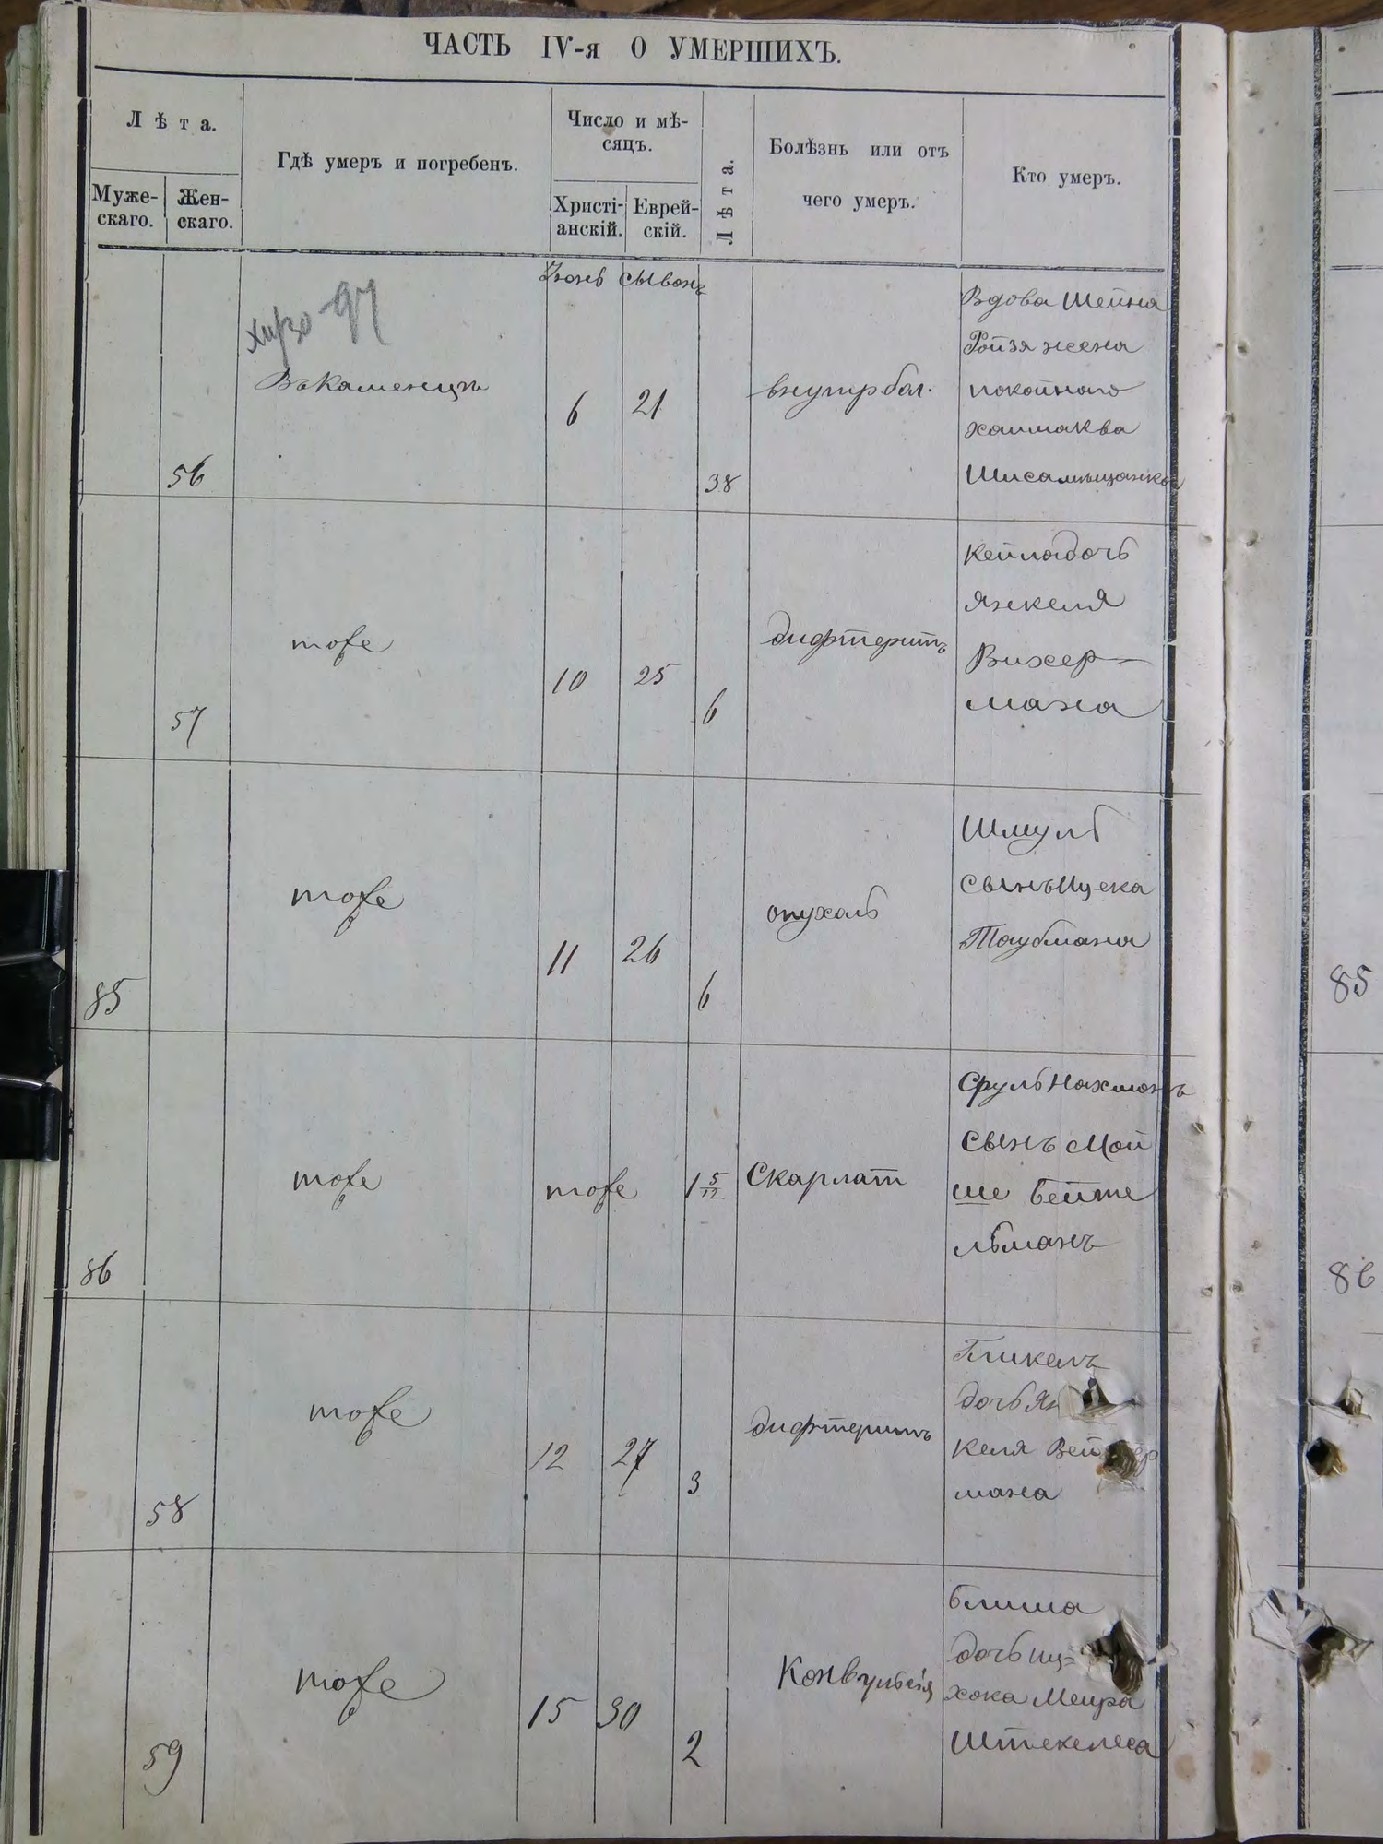 ЧАСТЬ IV-я О УМЕРШИХЪ.
Лѣта.
Муже-
скаго.
Жен-
скаго.
Гдѣ умеръ и погребенъ.
Число и мѣ-
сяцъ.
Христі-
анскій.
Еврей-
скій.
Лѣта.
Болѣзнь или отъ
чего умеръ.
Кто умеръ.
Іюнь Сывонъ
97
56
Въ Каменицѣ
6 21
38
внутр бол.
Вдова Шейна
Ройзя жена
покойного
57
тоже
10 25
6
дифтеритъ
Кейла дочь
Янкеля
Вихер-
мана
85
тоже
11 26
6
опухоль
Шмуль
сынъ Ицека
Таубмана
85
86
тоже
тоже
1 5/12
Скарлат
Сруль Нахманъ
сынъ Мой
ше Бейте
льманъ
86
58
тоже
12 27
3
дифтеритъ
дочь Ян
келя
мана
59
тоже
15 30
2
Конвульсія
Блима
дочь Иц=
хока Меира
Штекелеса